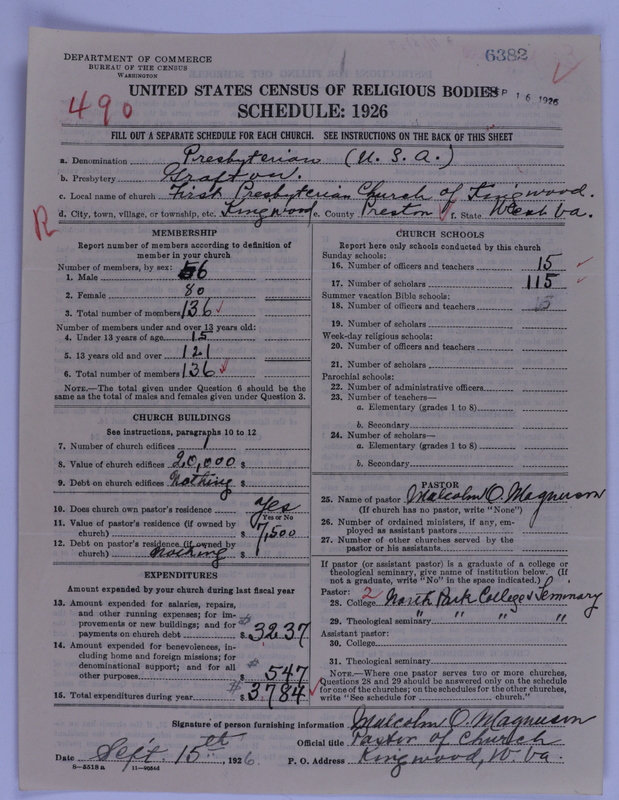 6382
DEPARTMENT OF COMMERCE
BUREAU OF THE CENSUS
WASHINGTON
UNITED STATES CENSUS OF RELIGIOUS BODIES
SEP 16 1926
490
SCHEDULE: 1926
FILL OUT A SEPARATE SCHEDULE FOR EACH CHURCH. SEE INSTRUCTIONS ON THE BACK OF THIS SHEET
a. Denomination Presbyterian (U.S.A.)
b. Presbytery Grafton.
c. Local name of church First Presbyterian Church of Kingwood.
R
d. City, town, village, or township, etc. Kingwood e. County Preston f. State West Va.
MEMBERSHIP
Report number of members according to definition of
member in your church
Number of members, by sex:
1. Male 56
2. Female 80
3. Total number of members 136
Number of members under and over 13 years old:
4. Under 13 years of age 15
5. 13 years old and over 121
6. Total number of members 136
NOTE.—The total given under Question 6 should be the
same as the total of males and females given under Question 3.
CHURCH BUILDINGS
See instructions, paragraphs 10 to 12
7. Number of church edifices 1
8. Value of church edifices 20,000 $
9. Debt on church edifices Nothing $
10. Does church own pastor's residence Yes
Yes or No
11. Value of pastor's residence (if owned by
church) $ 7,500
12. Debt on pastor's residence (if owned by
church) Nothing $
EXPENDITURES
Amount expended by your church during last fiscal year
13. Amount expended for salaries, repairs,
and other running expenses; for im-
provements or new buildings; and for
payments on church debt $ 3237
14. Amount expended for benevolences, in-
cluding home and foreign missions; for
denominational support; and for all
other purposes $ 547
15. Total expenditures during year $ 3784
CHURCH SCHOOLS
Report here only schools conducted by this church
Sunday schools:
16. Number of officers and teachers 15
17. Number of scholars 115
Summer vacation Bible schools:
18. Number of officers and teachers
19. Number of scholars
Week-day religious schools:
20. Number of officers and teachers
21. Number of scholars
Parochial schools:
22. Number of administrative officers
23. Number of teachers—
a. Elementary (grades 1 to 8)
b. Secondary
24. Number of scholars—
a. Elementary (grades 1 to 8)
b. Secondary
PASTOR
25. Name of pastor Malcolm O. Magnuson
(If church has no pastor, write "None")
26. Number of ordained ministers, if any, em-
ployed as assistant pastors
27. Number of other churches served by the
pastor or his assistants
If pastor (or assistant pastor) is a graduate of a college or
theological seminary, give name of institution below. (If
not a graduate, write "No" in the space indicated.)
Pastor: 2
28. College North Park College & Seminary
29. Theological seminary " " " "
Assistant pastor:
30. College
31. Theological seminary
NOTE.—Where one pastor serves two or more churches,
Questions 28 and 29 should be answered only on the schedule
for one of the churches; on the schedules for the other churches,
write "See schedule for church."
Signature of person furnishing information Malcolm O. Magnuson
Official title Pastor of Church
Date Sept. 15th, 1926. P. O. Address Kingwood, W. Va.
8—5518a 11—9554d